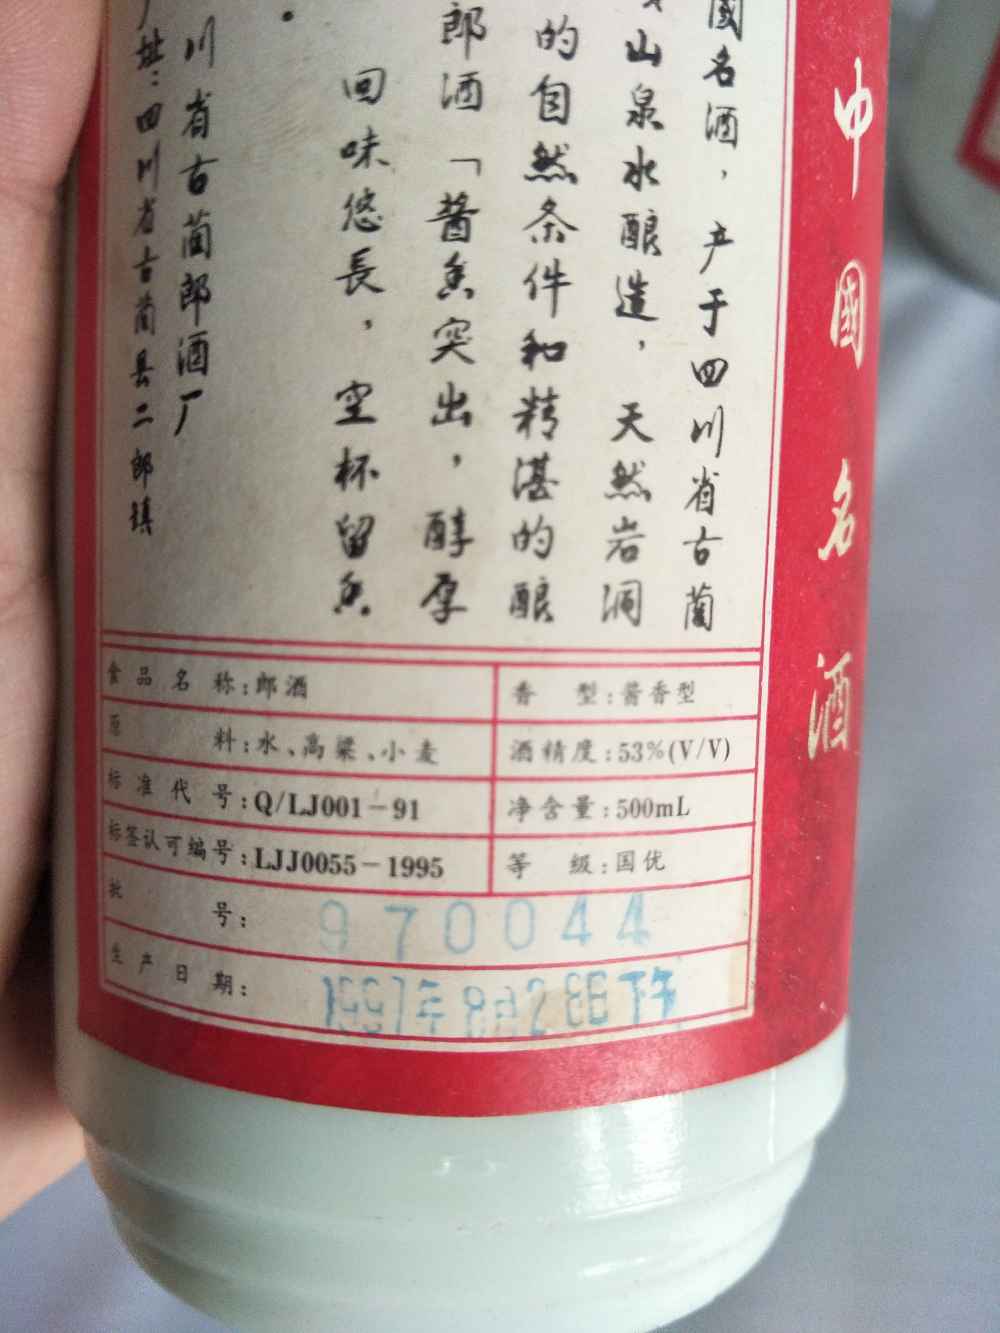 中國名酒
國名酒，产于四川省古蔺
山泉水酿造，天然岩洞
的自然条件和精湛的酿
郎酒「酱香突出，醇厚
回味悠長，空杯留香
。
川省古蔺郎酒厂
厂址：四川省古蔺县二郎镇
食品名称：郎酒
香型：酱香型
原料：水、高粱、小麦
酒精度：53%(V/V)
标准代号：Q/LJ001-91
净含量：500mL
标签认可编号：LJJ0055-1995
等级：国优
批号：970044
生产日期：1997年8月28日下午